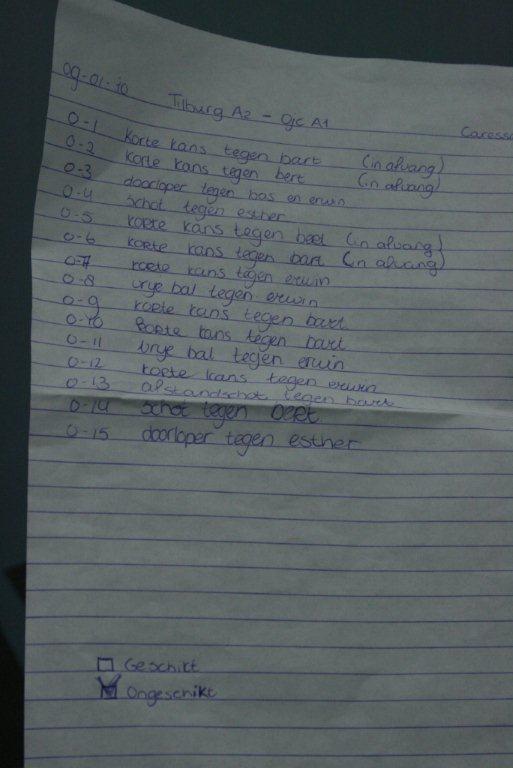 09-01-10
Tilburg A2 - OJC A1
Caress
0-1 korte kans tegen bart (in afvang)
0-2 korte kans tegen bert (in afvang)
0-3 doorloper tegen bas en erwin
0-4 schot tegen esther
0-5 korte kans tegen bert (in afvang)
0-6 korte kans tegen bart (in afvang)
0-7 korte kans tegen erwin
0-8 vrye bal tegen erwin
0-9 korte kans tegen bart
0-10 korte kans tegen bart
0-11 vrye bal tegen erwin
0-12 korte kans tegen erwin
0-13 afstandschot tegen bart
0-14 schot tegen bert
0-15 doorloper tegen esther
Geschikt
Ongeschikt